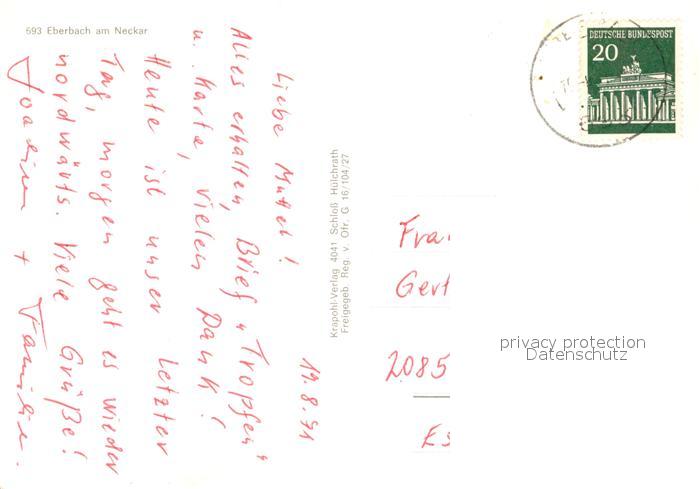 693 Eberbach am Neckar
19.8.71
Liebe Mutter!
Alles erhalten, Brief „Tropfen“
u. Karte, vielen Dank!
Heute ist unser letzter
Tag, morgen geht es wieder
nordwärts. Viele Grüße!
Joachim + Familie.
Krapohl-Verlag 4041 Schloß Hülchrath
Freigegeb. Reg. v. Ofr. G 16/104/27
DEUTSCHE BUNDESPOST
20
Fra
Gert
2085
Es
privacy protection
Datenschutz